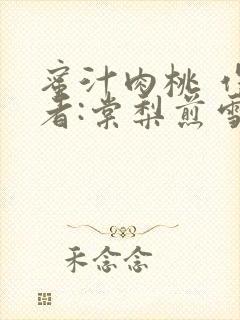 蜜汁肉桃 作
者:棠梨煎雪
禾念念